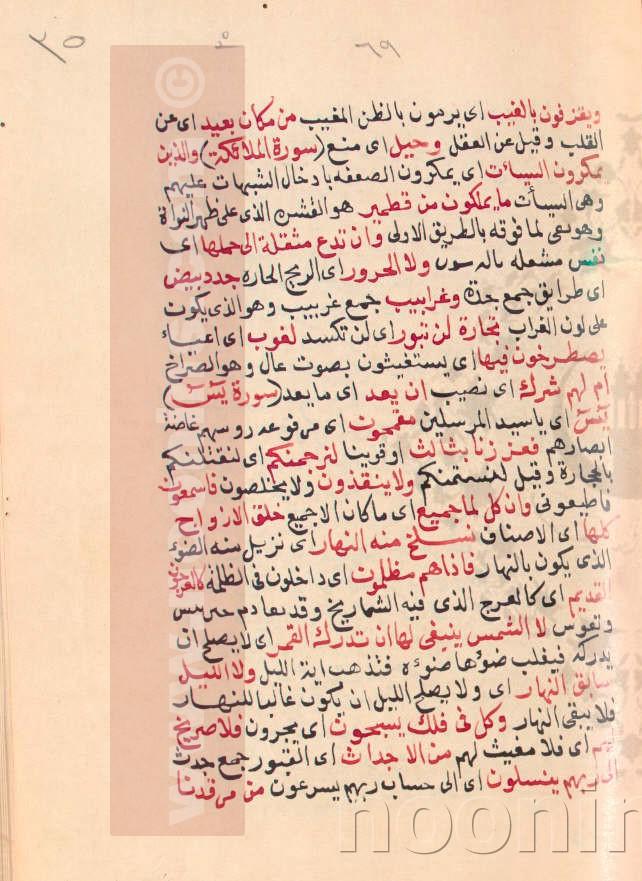 ٣٥ ٦٩
ويقذفون بالغيب اى يرمون بالظن المغيب من مكان بعيد اى عن
القلب وقيل عن العقل وحيل اى منع (سورة الملائكة) والذين
يمكرون السيئات اى يمكرون الضعفه بادخال الشبهات عليهم
وهى السيأت ما يملكون من قطمير هو القشر الذى على ظهر النواة
وهو نفى لما فوقه بالطريق الاولى وان تدع مثقلة الى حملها اى
نفس مثقله ولا الحرور اى الريح الحاره جدد بيض
اى طرايق جمع جدة وغرابيب جمع غربيب وهو الذى يكون
على لون الغراب تجارة لن تبور اى لن تكسد لغوب اى اعياء
يصطرخون فيها اى يستغيثون بصوت عال وهو الصراخ
ام لهم شرك اى نصيب ان يعد اى ما يعد (سورة يس)
يس اى يا سيد المرسلين مقمحون اى مرفوعه روسهم غاضة
ابصارهم فعززنا بثالث او قوينا لنرجمنكم اى لنقتلنكم
بالحجارة وقيل لنشتمنكم ولا ينقذون ولا يخلصون فاسمعون
فاطيعونى وان كل لما جميع اى ما كان الا جميع خلق الازواج
كلها اى الاصناف نسلخ منه النهار اى نزيل منه الضوء
الذى يكون بالنهار فاذا هم مظلمون اى داخلون فى الظلمة كالعرجون
القديم اى كالعرج الذى فيه الشماريخ وقد تقادم حتى يبس
وتقوس لا الشمس ينبغى لها ان تدرك القمر اى لا يصلح ان
يدركه فيغلب ضوئها ضوئه فتذهب اية الليل ولا الليل
سابق النهار اى ولا يصلح الليل ان يكون غالبا للنهار
فلا يبقى النهار وكل فى فلك يسبحون اى يجرون فلا صريخ
لهم اى فلا مغيث لهم من الاجداث اى القبور جمع جدث
الى ربهم ينسلون اى الى حساب ربهم يسرعون من مرقدنا
noonin